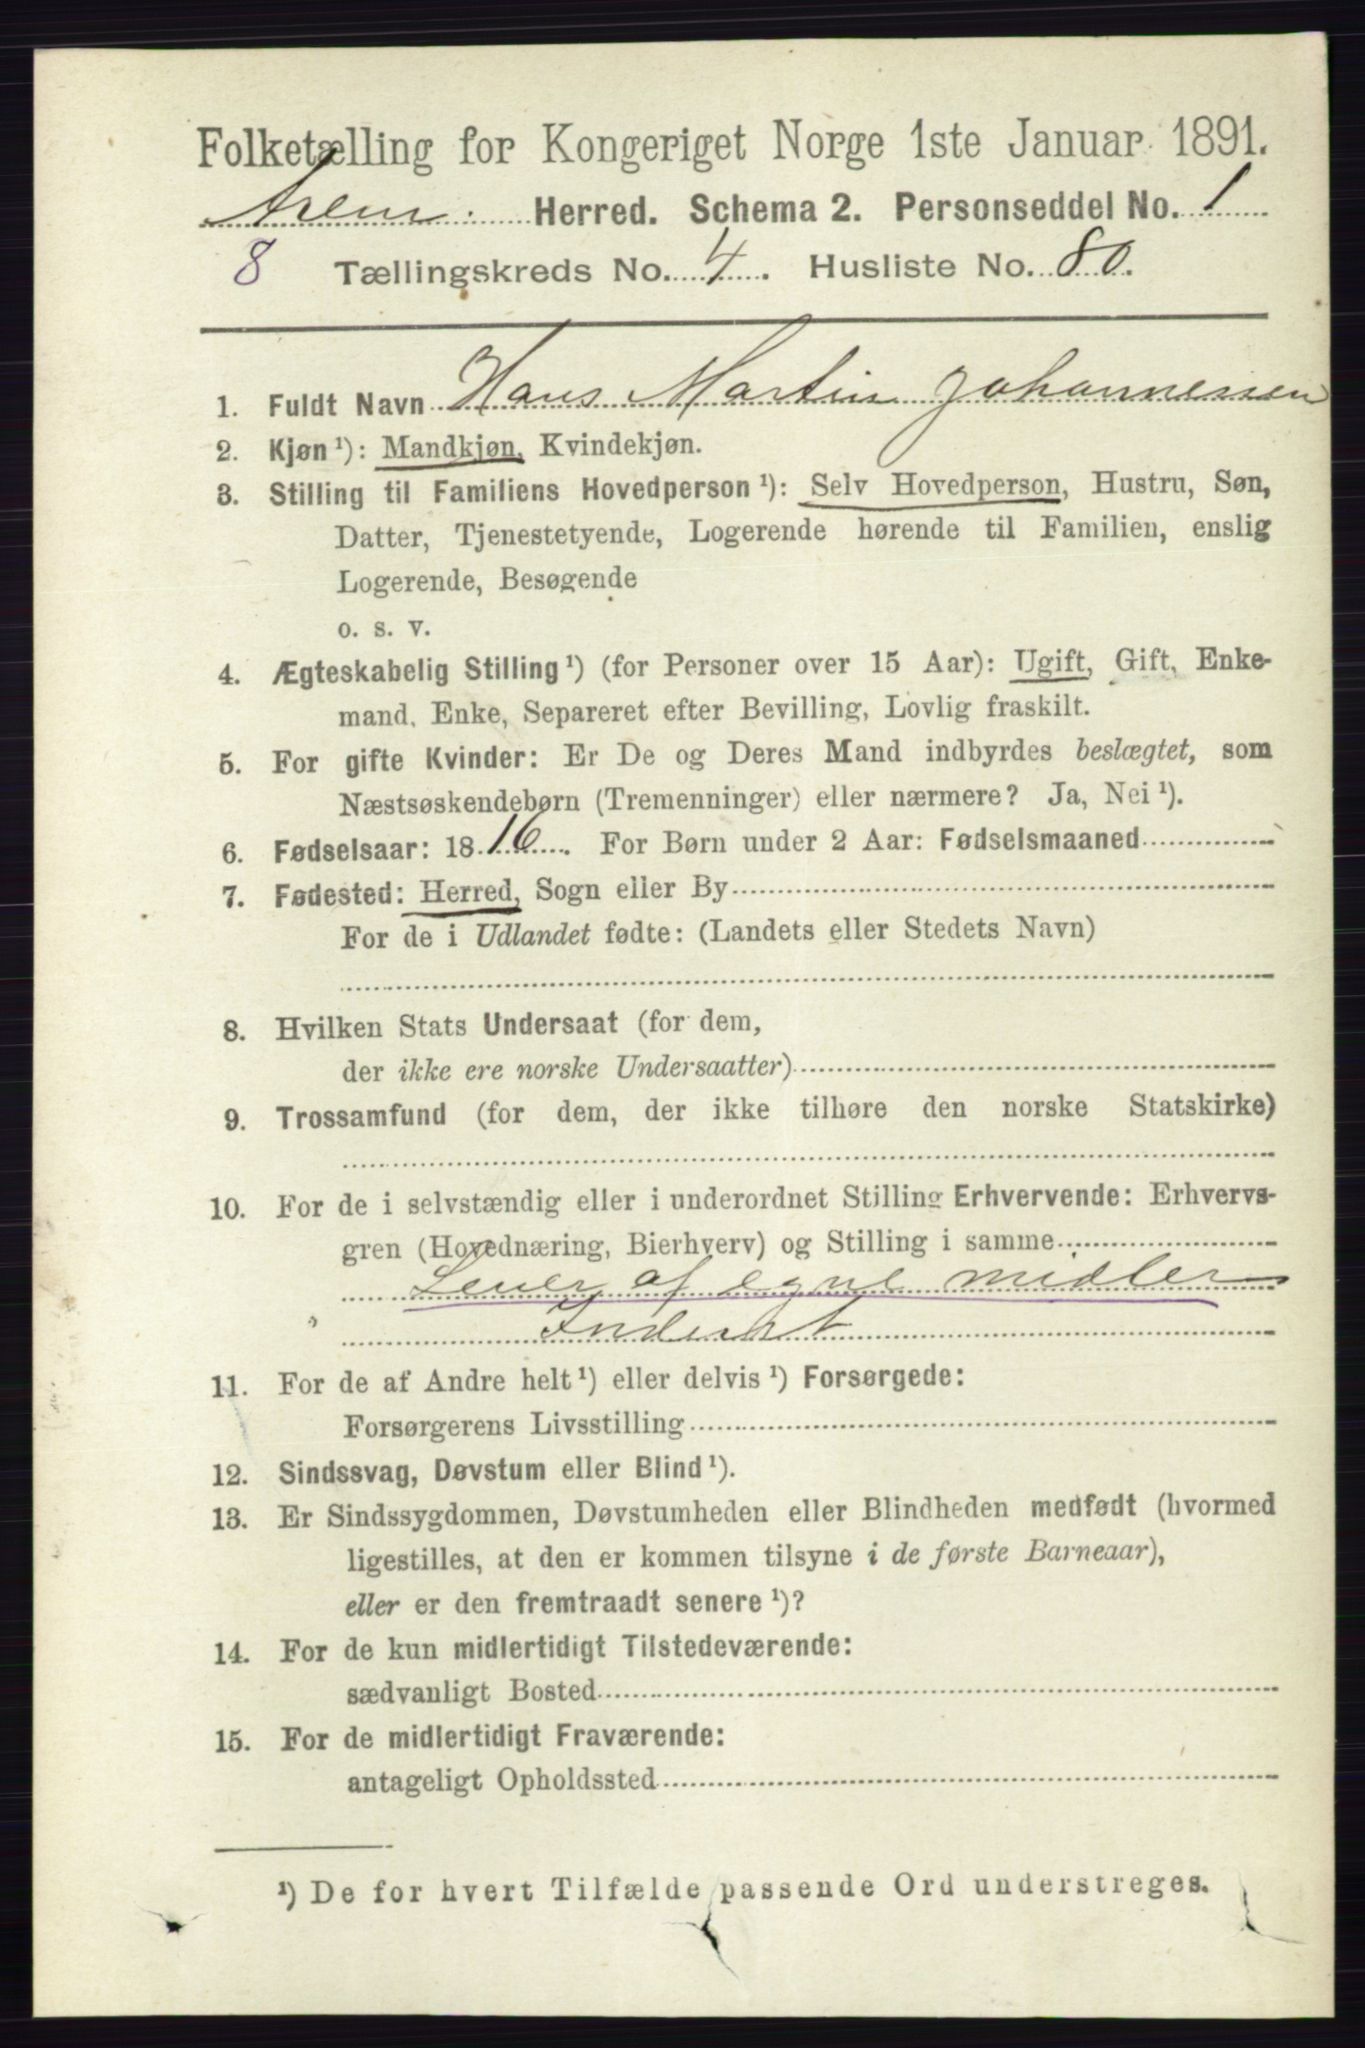 Folketælling for Kongeriget Norge 1ste Januar 1891.
Herred. Schema 2. Personseddel No. 1
8 Tællingskreds No. 4. Husliste No. 80.
1. Fuldt Navn Hans Martin Johannessen
2. Kjøn ¹): Mandkjøn, Kvindekjøn.
3. Stilling til Familiens Hovedperson ¹): Selv Hovedperson, Hustru, Søn,
Datter, Tjenestetyende, Logerende hørende til Familien, enslig
Logerende, Besøgende
o. s. v.
4. Ægteskabelig Stilling ¹) (for Personer over 15 Aar): Ugift, Gift, Enke-
mand, Enke, Separeret efter Bevilling, Lovlig fraskilt.
5. For gifte Kvinder: Er De og Deres Mand indbyrdes beslægtet, som
Næstsøskendebørn (Tremenninger) eller nærmere? Ja, Nei ¹).
6. Fødselsaar: 1816. For Børn under 2 Aar: Fødselsmaaned
7. Fødested: Herred, Sogn eller By
For de i Udlandet fødte: (Landets eller Stedets Navn)
8. Hvilken Stats Undersaat (for dem,
der ikke ere norske Undersaatter)
9. Trossamfund (for dem, der ikke tilhøre den norske Statskirke)
10. For de i selvstændig eller i underordnet Stilling Erhvervende: Erhvervs-
gren (Hovednæring, Bierhverv) og Stilling i samme
Lever af egne midler
11. For de af Andre helt ¹) eller delvis ¹) Forsørgede:
Forsørgerens Livsstilling
12. Sindssvag, Døvstum eller Blind ¹).
13. Er Sindssygdommen, Døvstumheden eller Blindheden medfødt (hvormed
ligestilles, at den er kommen tilsyne i de første Barneaar),
eller er den fremtraadt senere ¹)?
14. For de kun midlertidigt Tilstedeværende:
sædvanligt Bosted
15. For de midlertidigt Fraværende:
antageligt Opholdssted
¹) De for hvert Tilfælde passende Ord understreges.